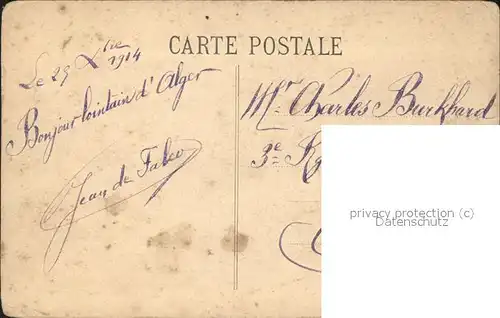 CARTE POSTALE
Le 25 Xbre 1914
Bonjour lointain d'Alger
Jean de Falco
Mr. Charles Burkhard
3e
privacy protection (c)
Datenschutz